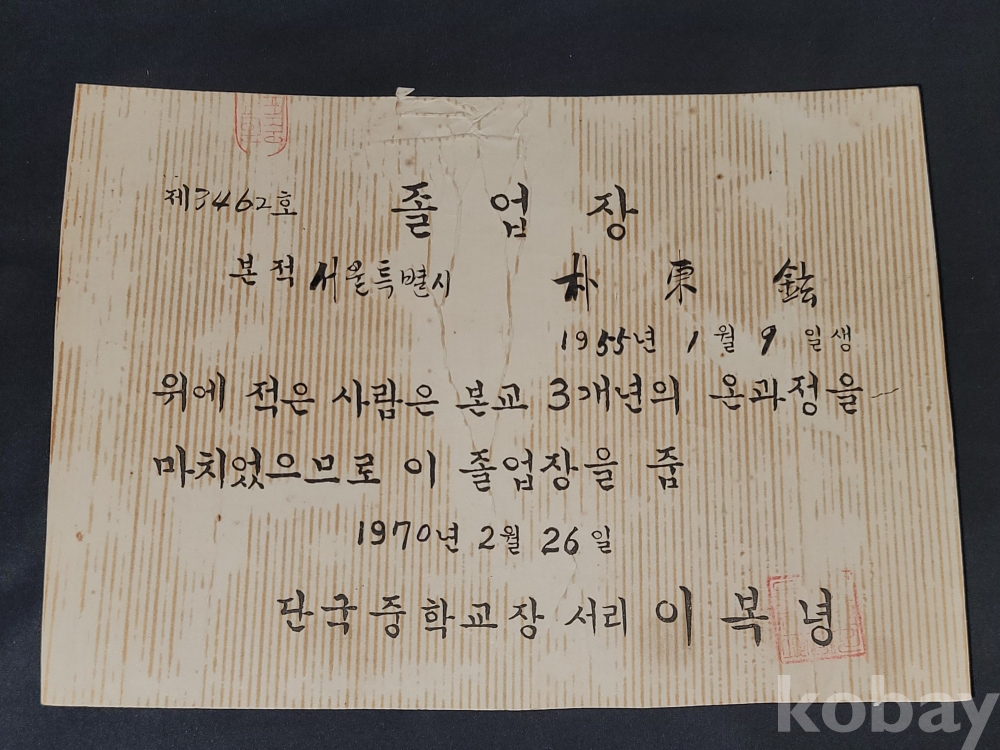 제3462호 졸업장
본적 서울특별시 朴東鉉
1955년 1월 9일생
위에 적은 사람은 본교 3개년의 온과정을
마치었으므로 이 졸업장을 줌
1970년 2월 26일
단국중학교장 서리 이복녕
kobay